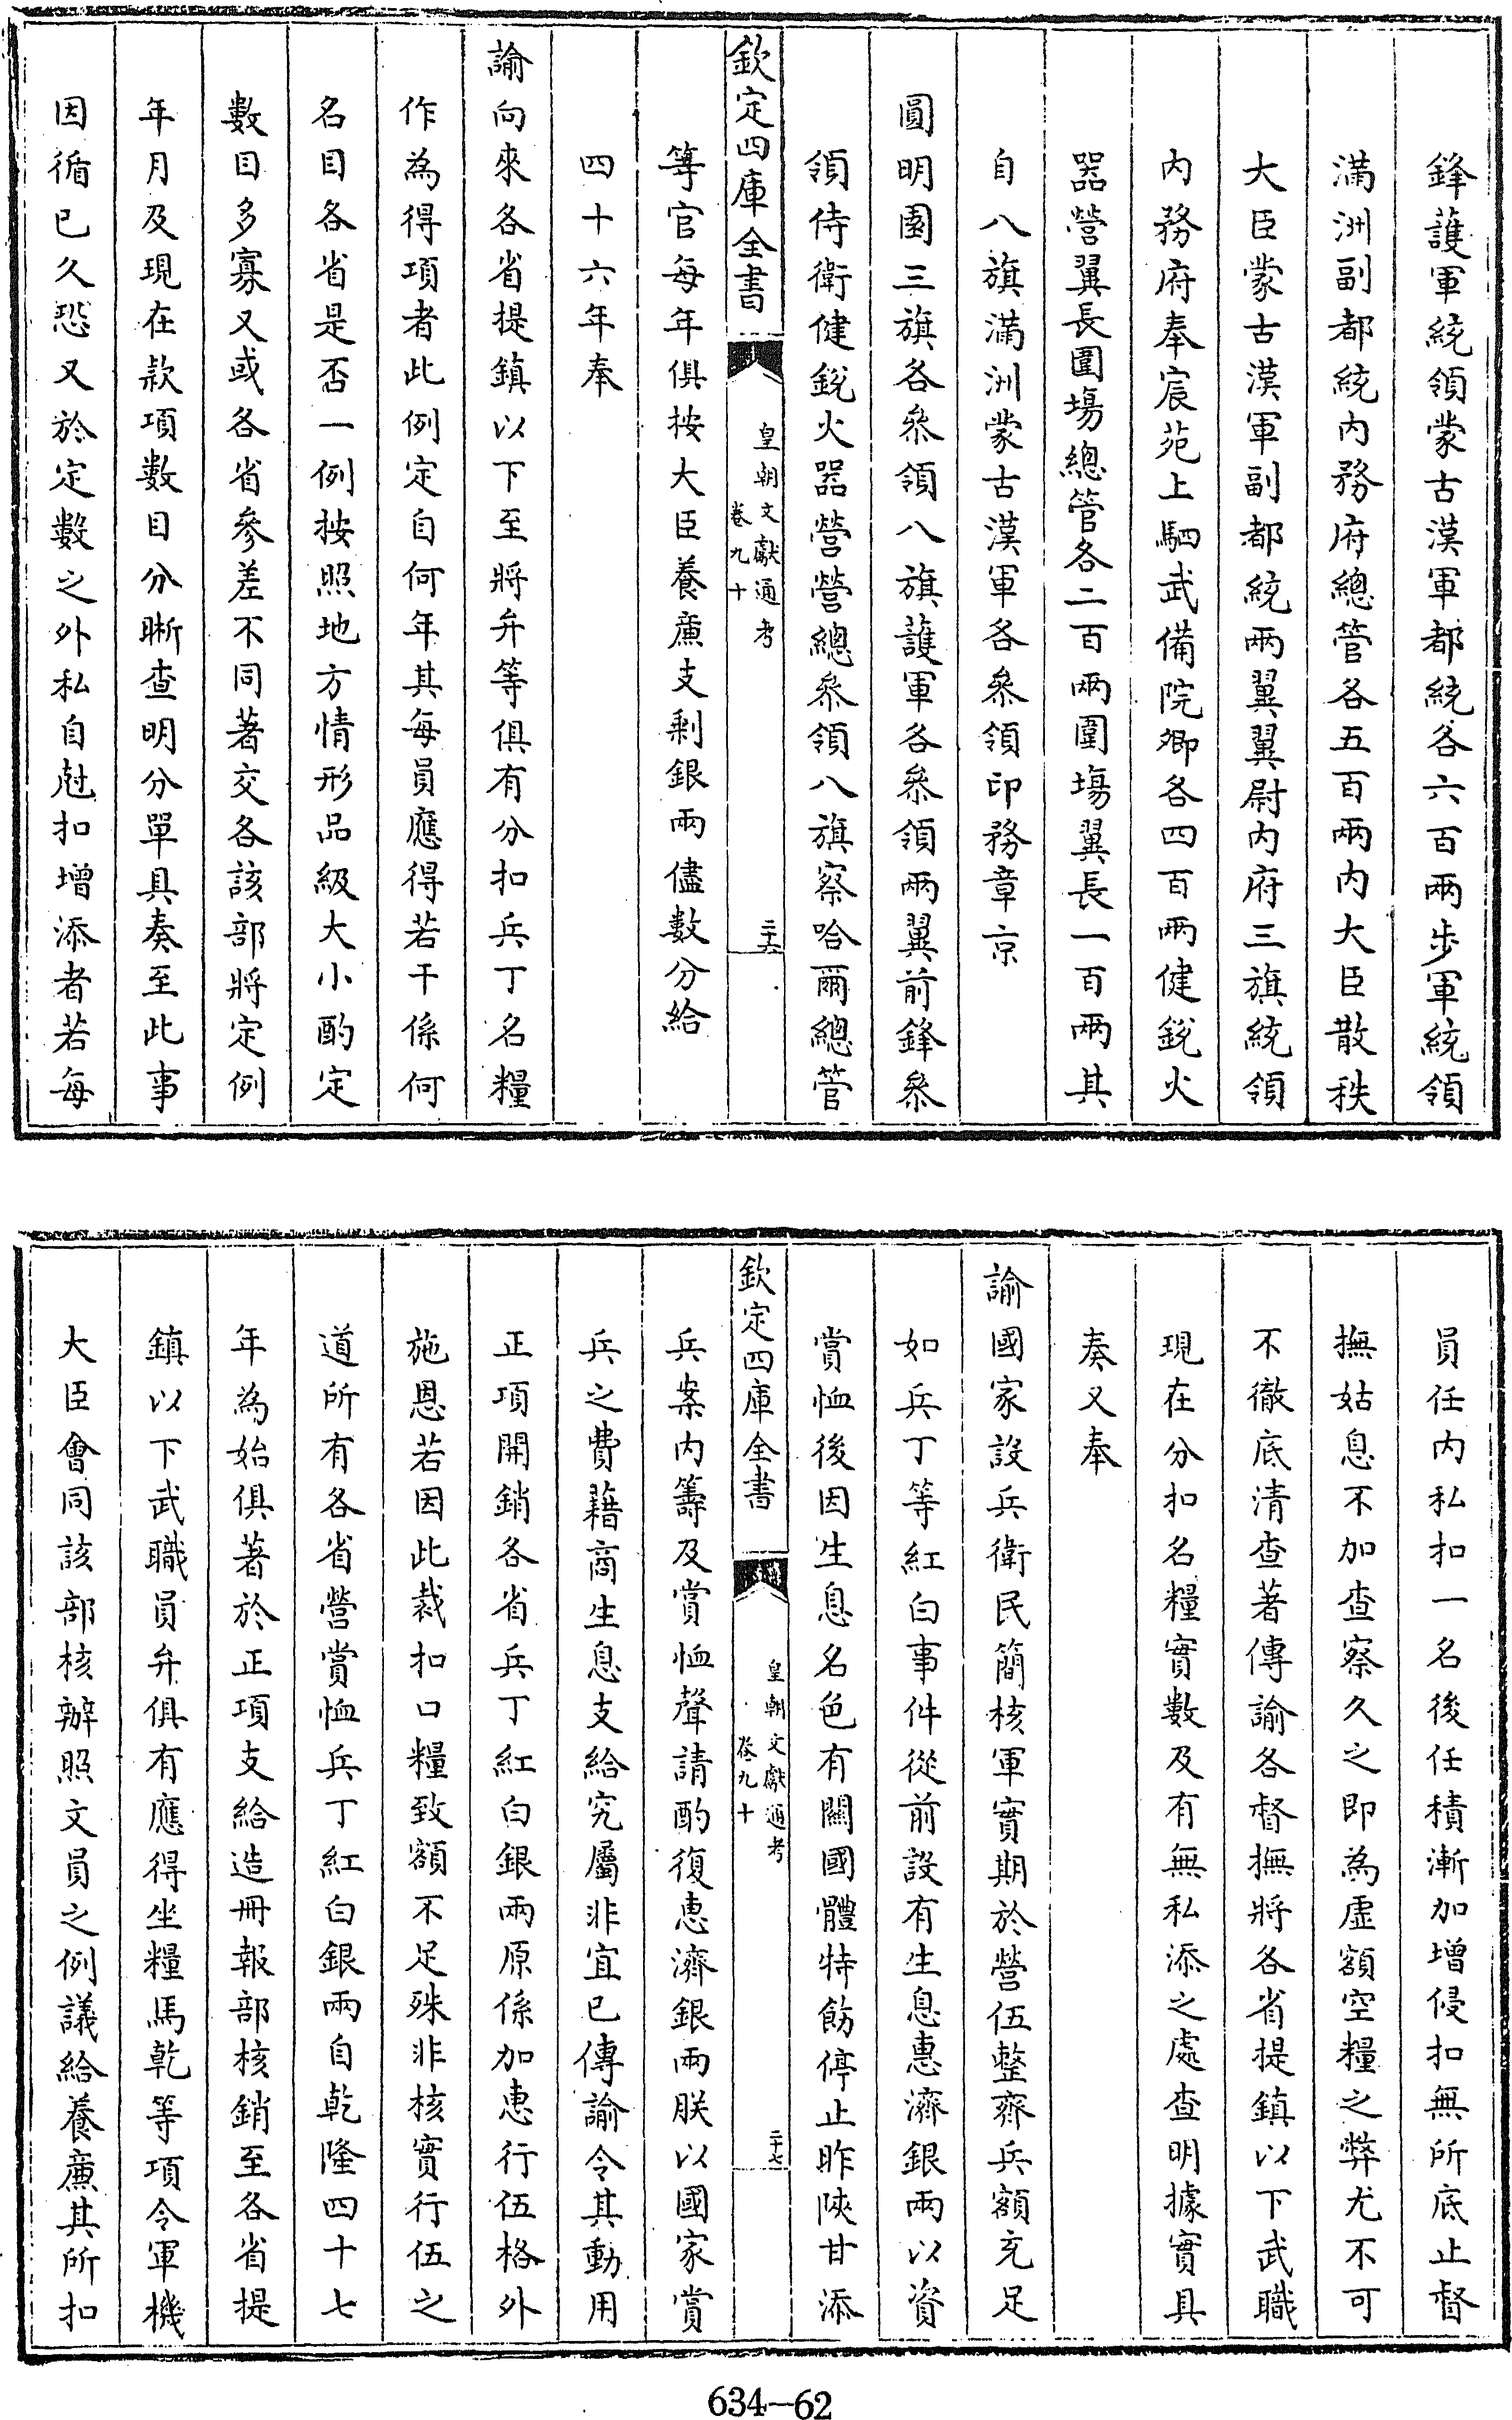 鋒護軍統領蒙古漢軍都統各六百兩步軍統領
滿洲副都統內務府總管各五百兩內大臣散秩
大臣蒙古漢軍副都統兩翼翼尉內府三旗統領
內務府奉宸苑上駟武備院卿各四百兩健銳火
器營翼長圍場總管各二百兩圍場翼長一百兩其
自八旗滿洲蒙古漢軍各叅領印務章京
圓明園三旗各叅領八旗護軍各叅領兩翼前鋒叅
領侍衛健銳火器營營總叅領八旗察哈爾總管
欽定四庫全書
皇朝文獻通考
卷九十
二十六
等官每年俱按大臣養廉支剩銀兩儘數分給
四十六年奉
諭向來各省提鎮以下至將弁等俱有分扣兵丁名糧
作為得項者此例定自何年其每員應得若干係何
名目各省是否一例按照地方情形品級大小酌定
數目多寡又或各省參差不同著交各該部將定例
年月及現在款項數目分晰查明分單具奏至此事
因循已久恐又於定數之外私自尅扣增添者若每
員任內私扣一名後任積漸加增侵扣無所底止督
撫姑息不加查察久之即為虛額空糧之弊尤不可
不徹底清查著傳諭各督撫將各省提鎮以下武職
現在分扣名糧實數及有無私添之處查明據實具
奏又奉
諭國家設兵衛民簡核軍實期於營伍整齊兵額充足
如兵丁等紅白事件從前設有生息惠濟銀兩以資
賞恤後因生息名色有關國體特飭停止昨陝甘添
欽定四庫全書
皇朝文獻通考
卷九十
二十七
兵案內籌及賞恤聲請酌復惠濟銀兩朕以國家賞
兵之費藉商生息支給究屬非宜已傳諭令其動用
正項開銷各省兵丁紅白銀兩原係加惠行伍格外
施恩若因此裁扣口糧致額不足殊非核實行伍之
道所有各省營賞恤兵丁紅白銀兩自乾隆四十七
年為始俱著於正項支給造冊報部核銷至各省提
鎮以下武職員弁俱有應得坐糧馬乾等項令軍機
大臣會同該部核辦照文員之例議給養廉其所扣
634-62